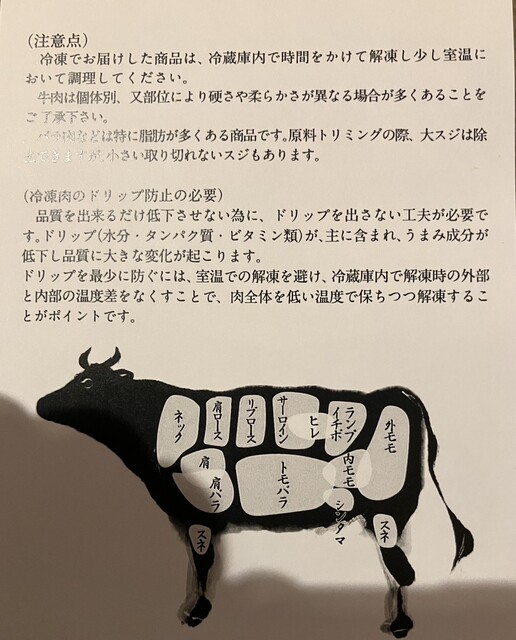 (注意点)
冷凍でお届けした商品は、冷蔵庫内で時間をかけて解凍し少し室温に
おいて調理してください。
牛肉は個体別、又部位により硬さや柔らかさが異なる場合が多くあることを
ご了承下さい。
などは特に脂肪が多くある商品です。原料トリミングの際、大スジは除
去できますが、小さい取り切れないスジもあります。
(冷凍肉のドリップ防止の必要)
品質を出来るだけ低下させない為に、ドリップを出さない工夫が必要で
す。ドリップ(水分・タンパク質・ビタミン類)が、主に含まれ、うまみ成分が
低下し品質に大きな変化が起こります。
ドリップを最少に防ぐには、室温での解凍を避け、冷蔵庫内で解凍時の外部
と内部の温度差をなくすことで、肉全体を低い温度で保ちつつ解凍するこ
とがポイントです。
ネック
肩ロース
リブロース
サーロイン
ヒレ
ランプ
イチボ
外モモ
肩
肩バラ
トモバラ
内モモ
シンタマ
スネ
スネ